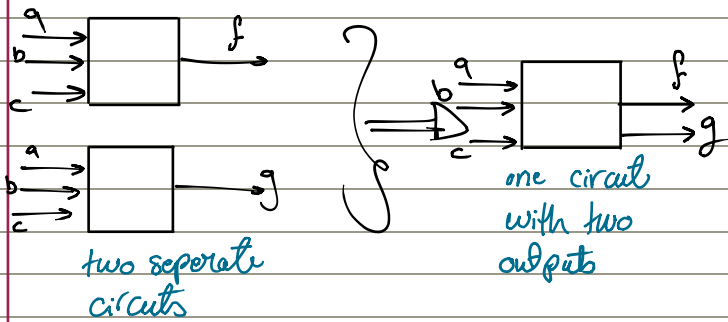 a
b
c
f
a
b
c
g
two seperate
circuts
a
b
c
f
g
one circuit
with two
outputs